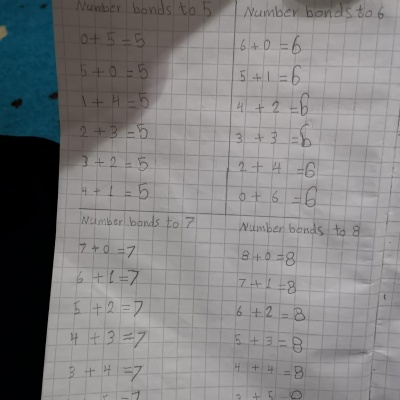 Number bonds to 5
0 + 5 = 5
5 + 0 = 5
1 + 4 = 5
2 + 3 = 5
3 + 2 = 5
4 + 1 = 5
Number bonds to 6
6 + 0 = 6
5 + 1 = 6
4 + 2 = 6
3 + 3 = 6
2 + 4 = 6
0 + 6 = 6
Number bonds to 7
7 + 0 = 7
6 + 1 = 7
5 + 2 = 7
4 + 3 = 7
3 + 4 = 7
Number bonds to 8
8 + 0 = 8
7 + 1 = 8
6 + 2 = 8
5 + 3 = 8
4 + 4 = 8